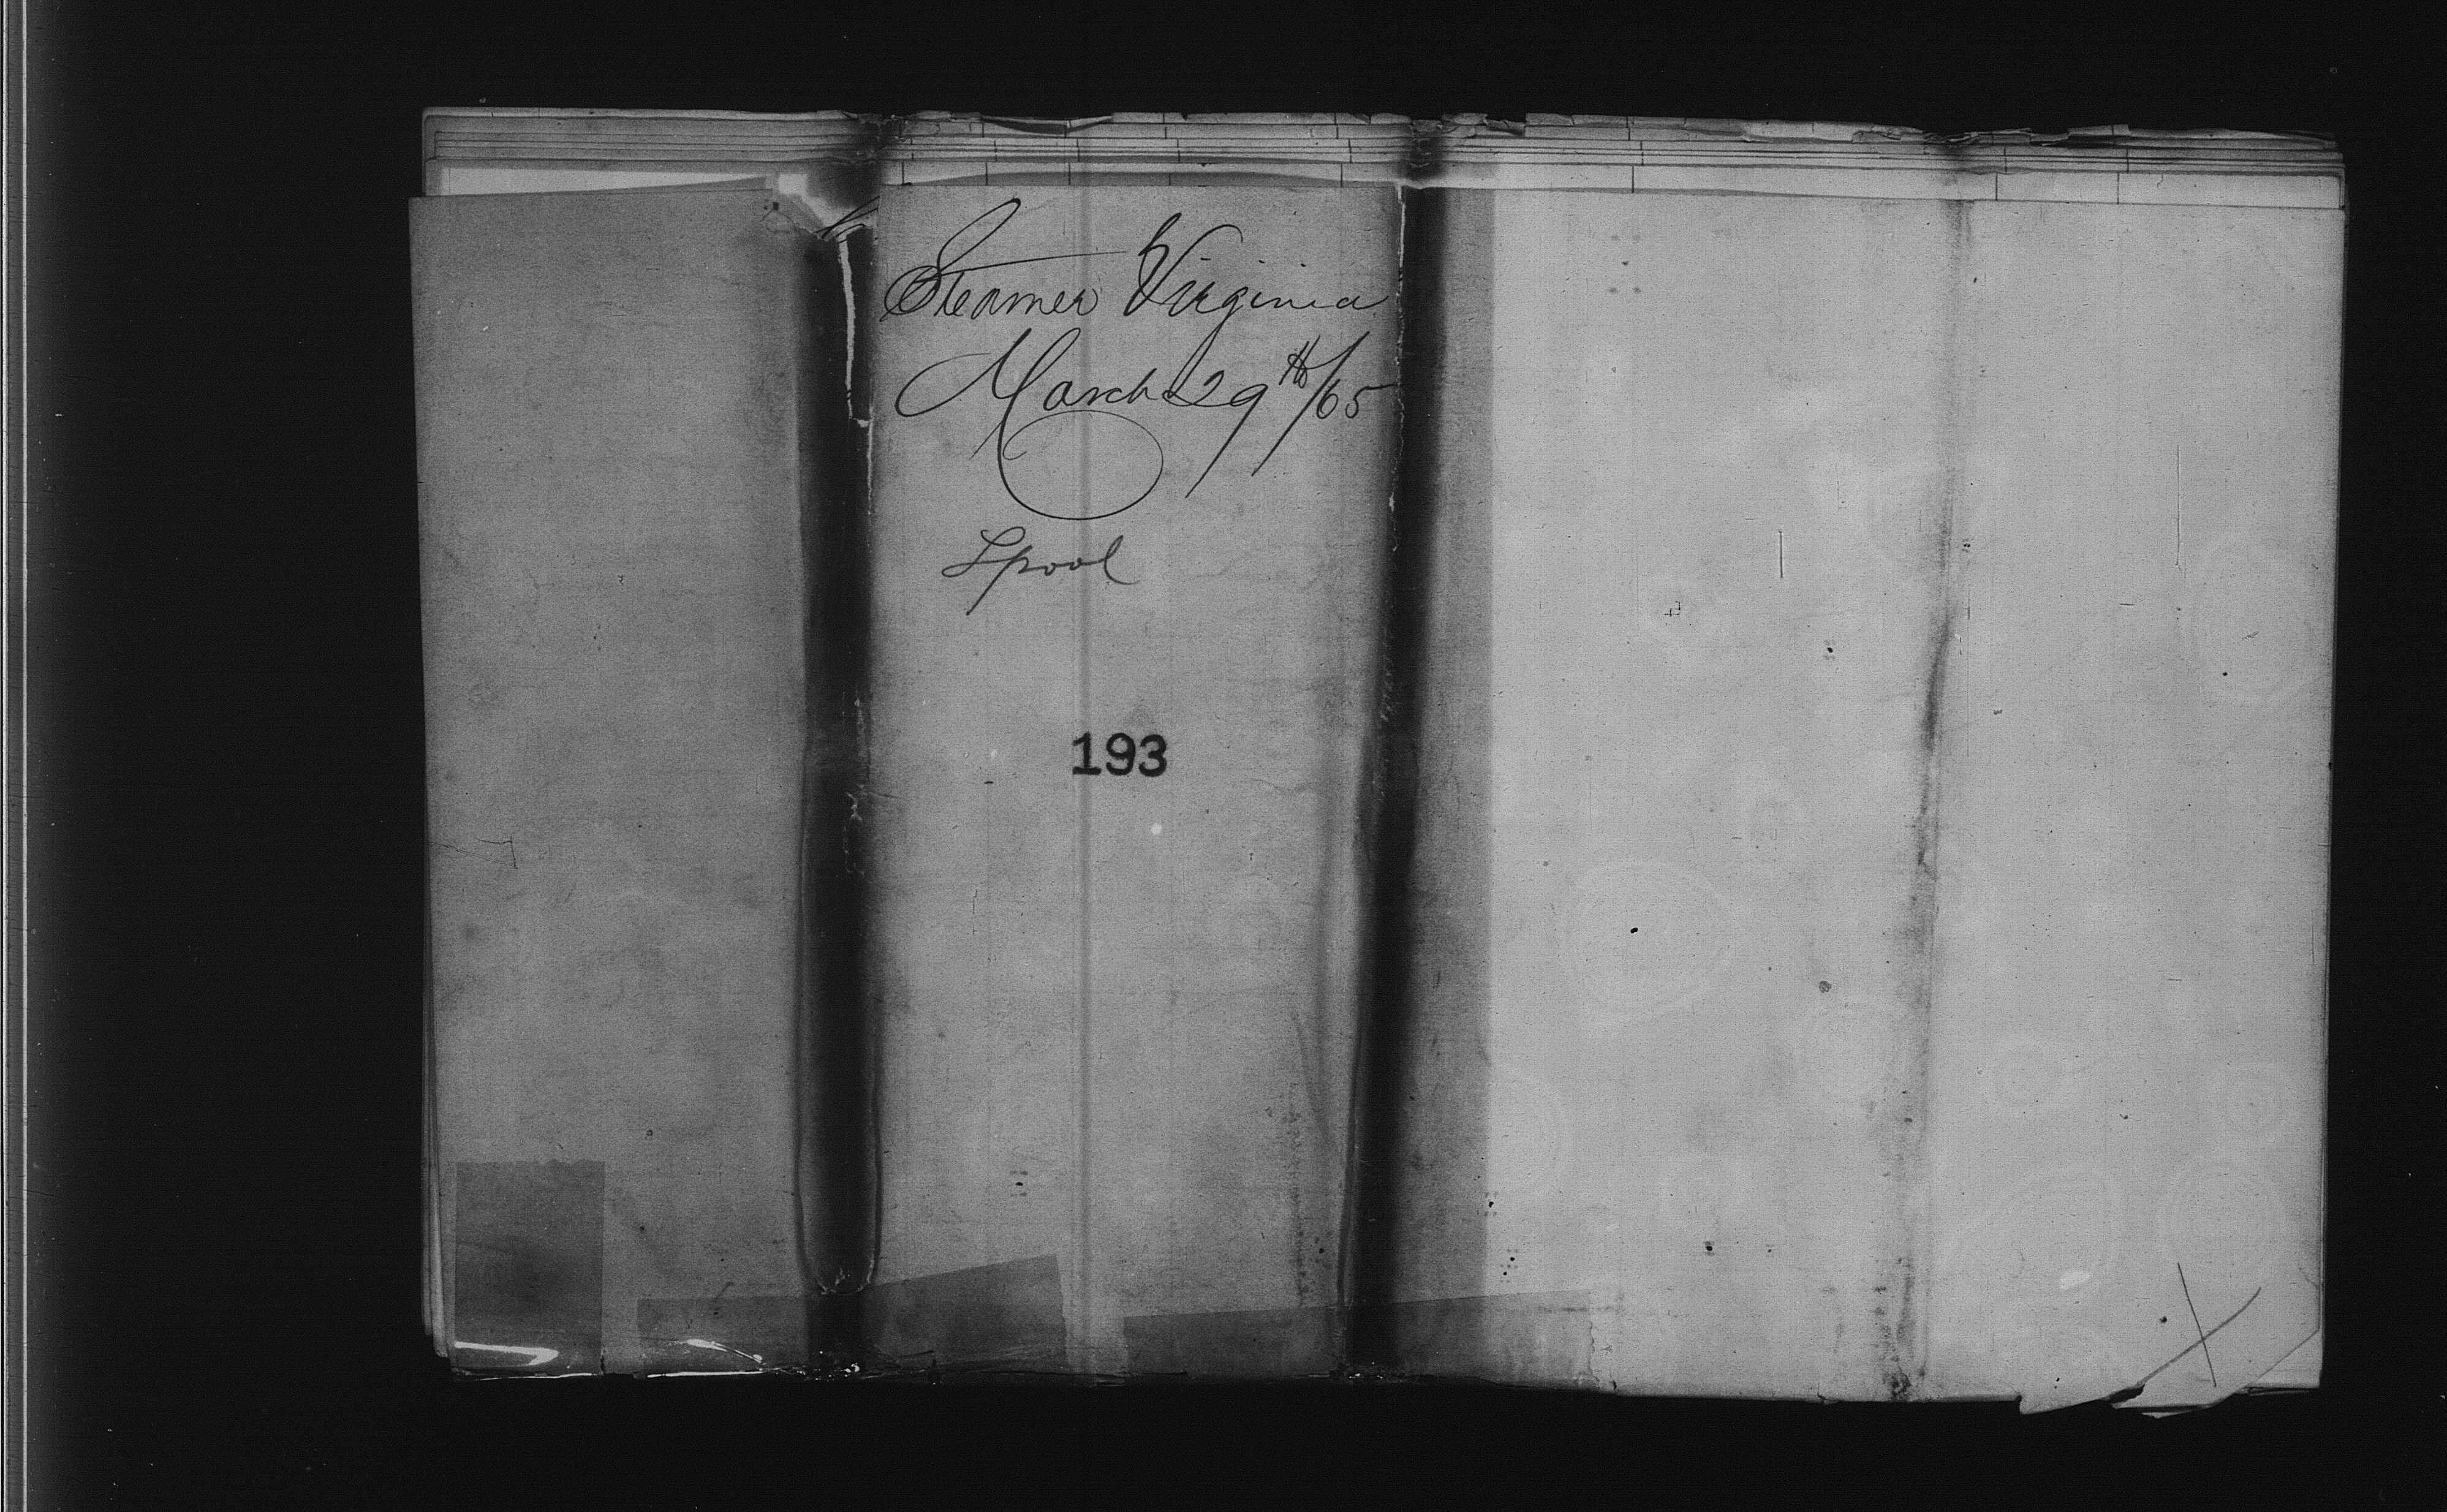 Steamer Virginia
March 29th/65
Lpool
193